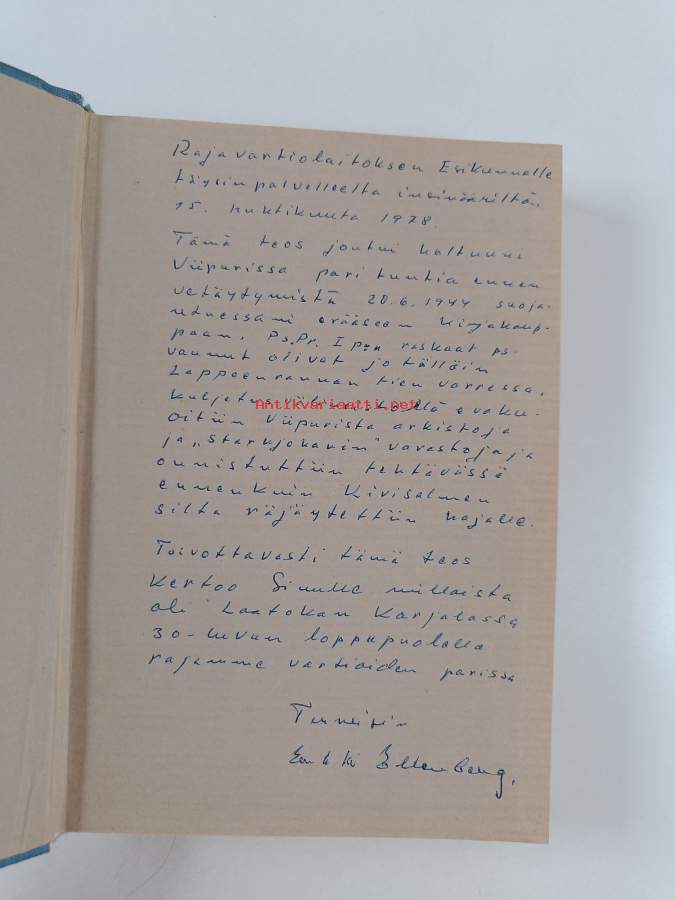 Rajavartiolaitoksen Esikunnalle
täysin palvelleelta insinööriltä
15. huhtikuuta 1978.
Tämä teos joutui haltuuni
Viipurissa pari tuntia ennen
vetäytymistä 20.6.1944 suoja-
utuessani erääseen kirjakaup-
paan. Ps.Pr. I P:n raskaat ps.
vaunut olivat jo tällöin
Lappeenrannan tien varressa.
Kuljetus evaku-
oitiin Viipurista arkistoja
ja "Starkjohanin" varastoja ja
onnistuttiin tehtävässä
ennenkuin Kivisalmen
silta räjäytettiin hajalle.
Toivottavasti tämä teos
kertoo Sinulle millaista
oli Laatokan Karjalassa
30-luvun loppupuolella
rajamme vartioiden parissa
Terveisin
Antikvariaatti.net